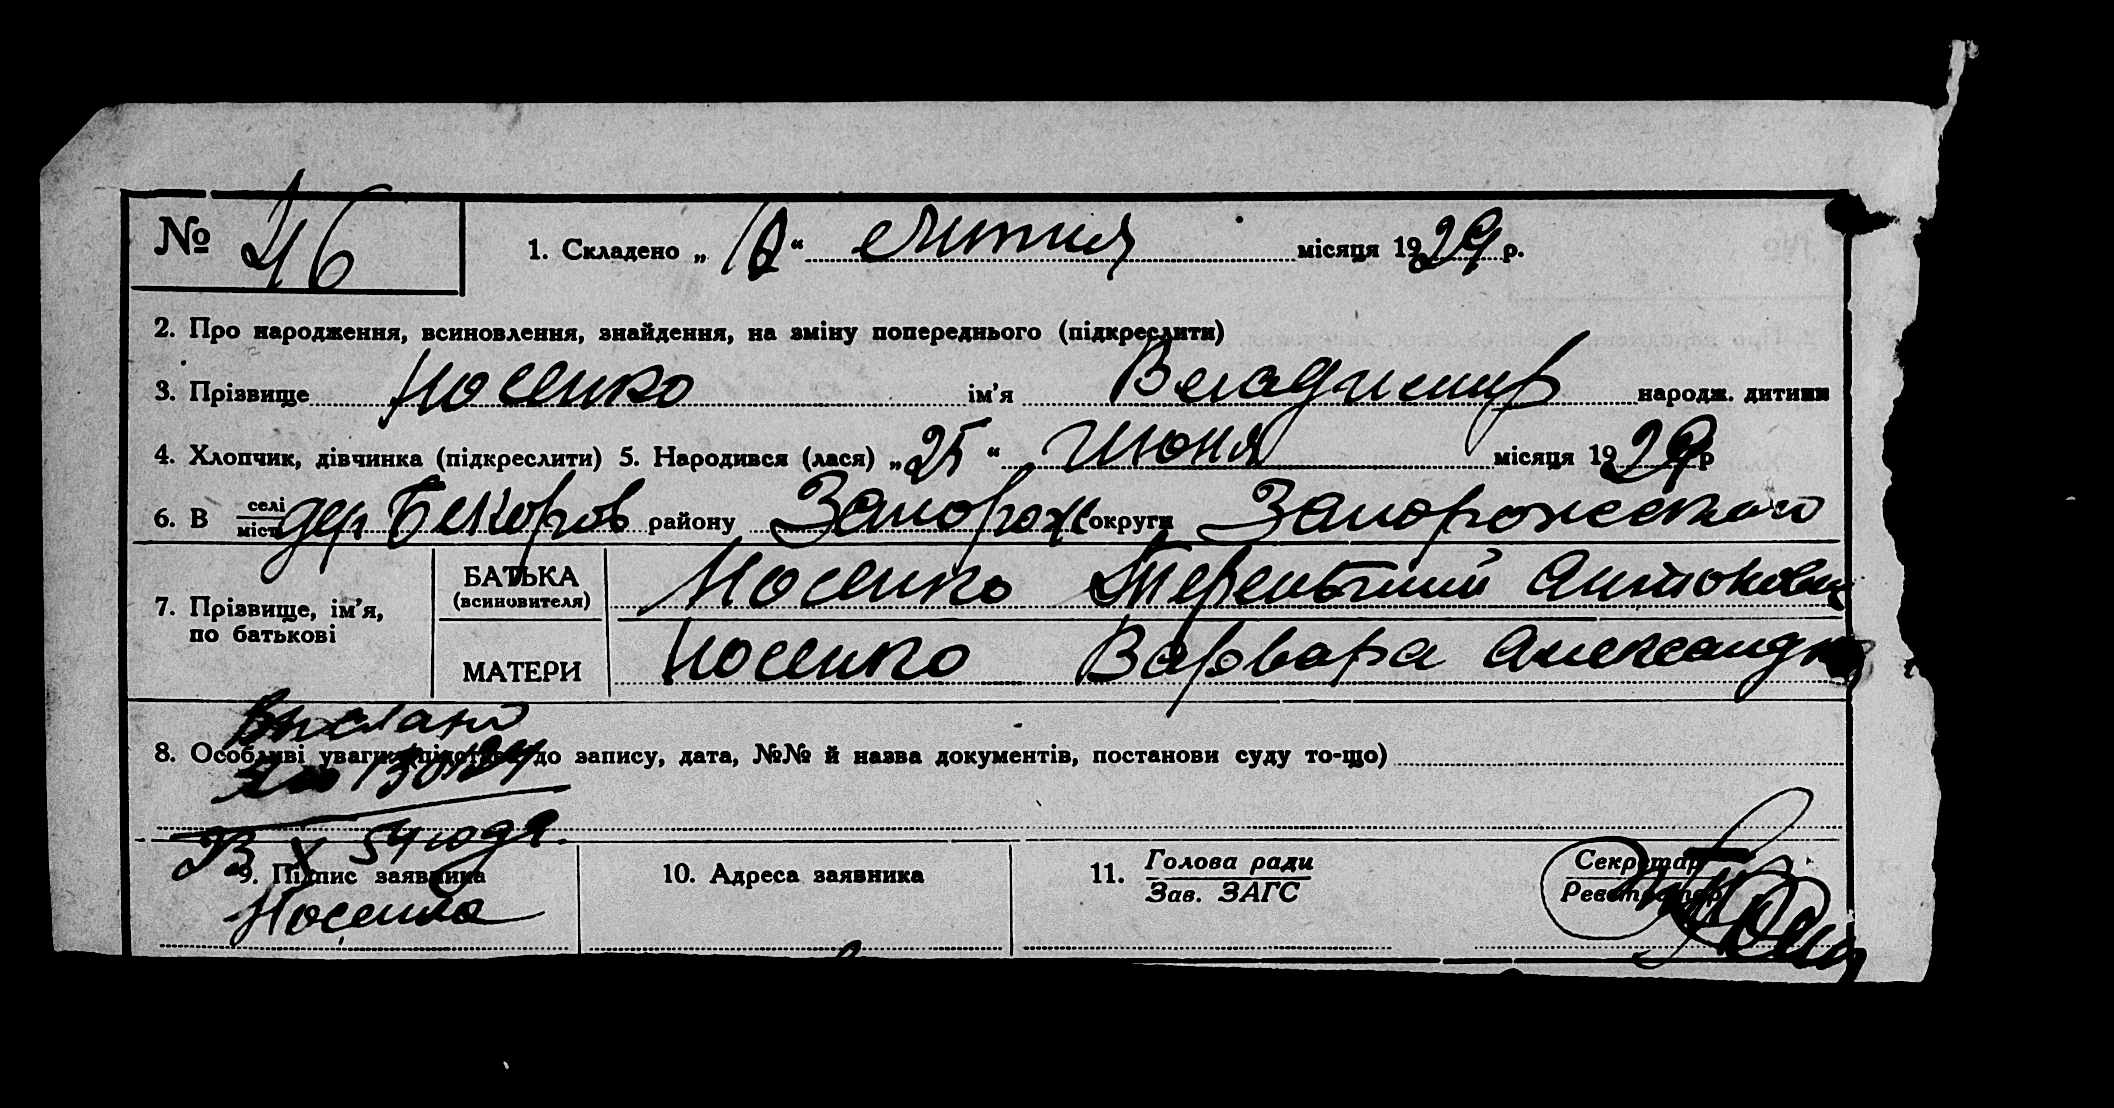 № 46 1. Складено „ “ липня місяця 1929 р.
2. Про народження, всиновлення, знайдення, на зміну попереднього (підкреслити)
3. Прізвище Носенко ім’я Владимир народж. дитини
4. Хлопчик, дівчинка (підкреслити) 5. Народився (лася) „25“ Июня місяця 1929 р
6. В селі міст дер района Запорож округи Запорожского
7. Прізвище, ім’я, по батькові
БАТЬКА (всиновителя) Носенко Терентий Антонович
МАТЕРИ Носенко Варвара Александр
Выслано
8. Особливі уваги (підстава до запису, дата, №№ й назва документів, постанови суду то-що)
В X 54 года.
9. Підпис заявника 10. Адреса заявника 11. Голова ради Секретар
Зав. ЗАГС Реєстратор
Носенко